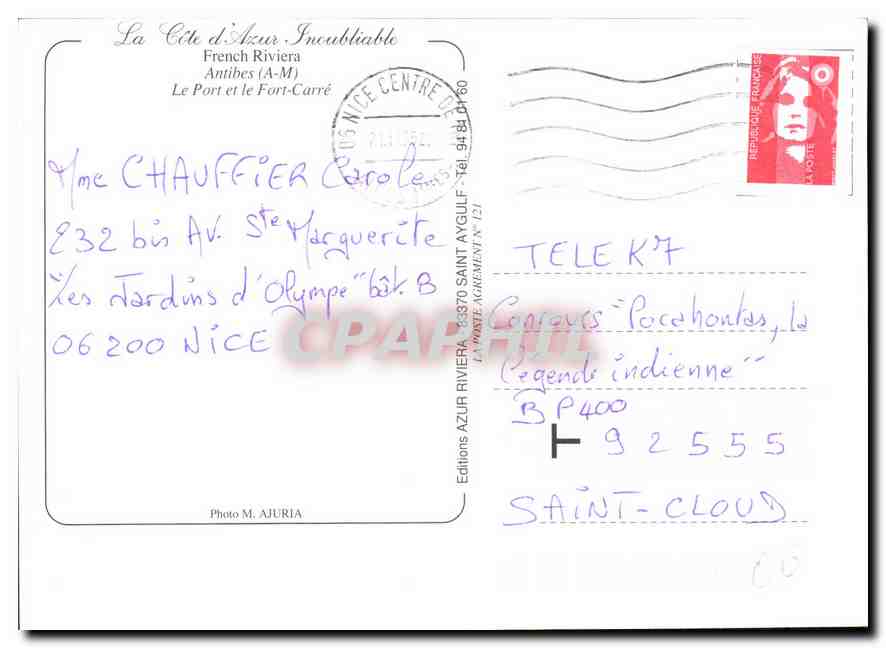 La Côte d'Azur Inoubliable
French Riviera
Antibes (A-M)
Le Port et le Fort-Carré
06 NICE CENTRE DE
Mme CHAUFFIER Carole
232 bis Av. Ste Marguerite
"Les Jardins d'Olympe" bât. B
06200 NICE
Photo M. AJURIA
Editions AZUR RIVIERA - 83370 SAINT AYGULF - Tél. 94 81 01 60
LA POSTE AGREMENT N° 121
RÉPUBLIQUE FRANÇAISE
LA POSTE
TELE K7
Concours "Pocahontas, la
légende indienne"
BP 400
92555
SAINT-CLOUD
CPAPHIL